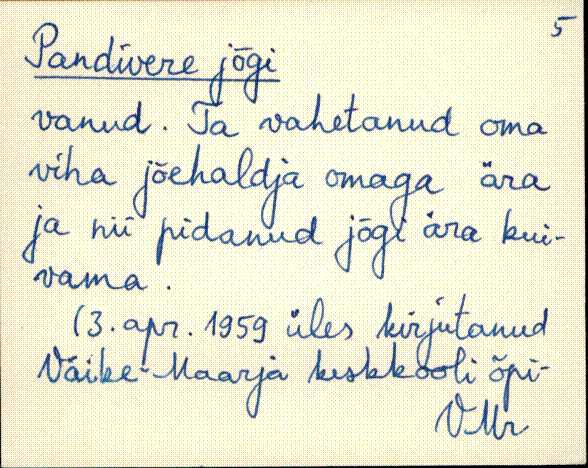 5
Pandivere jõgi
vanud. Ta vahetanud oma
viha jõehaldja omaga ära
ja nii pidanud jõgi ära kui-
vama.
(3. apr. 1959 üles kirjutanud
Väike-Maarja keskkooli õpi-
VMr